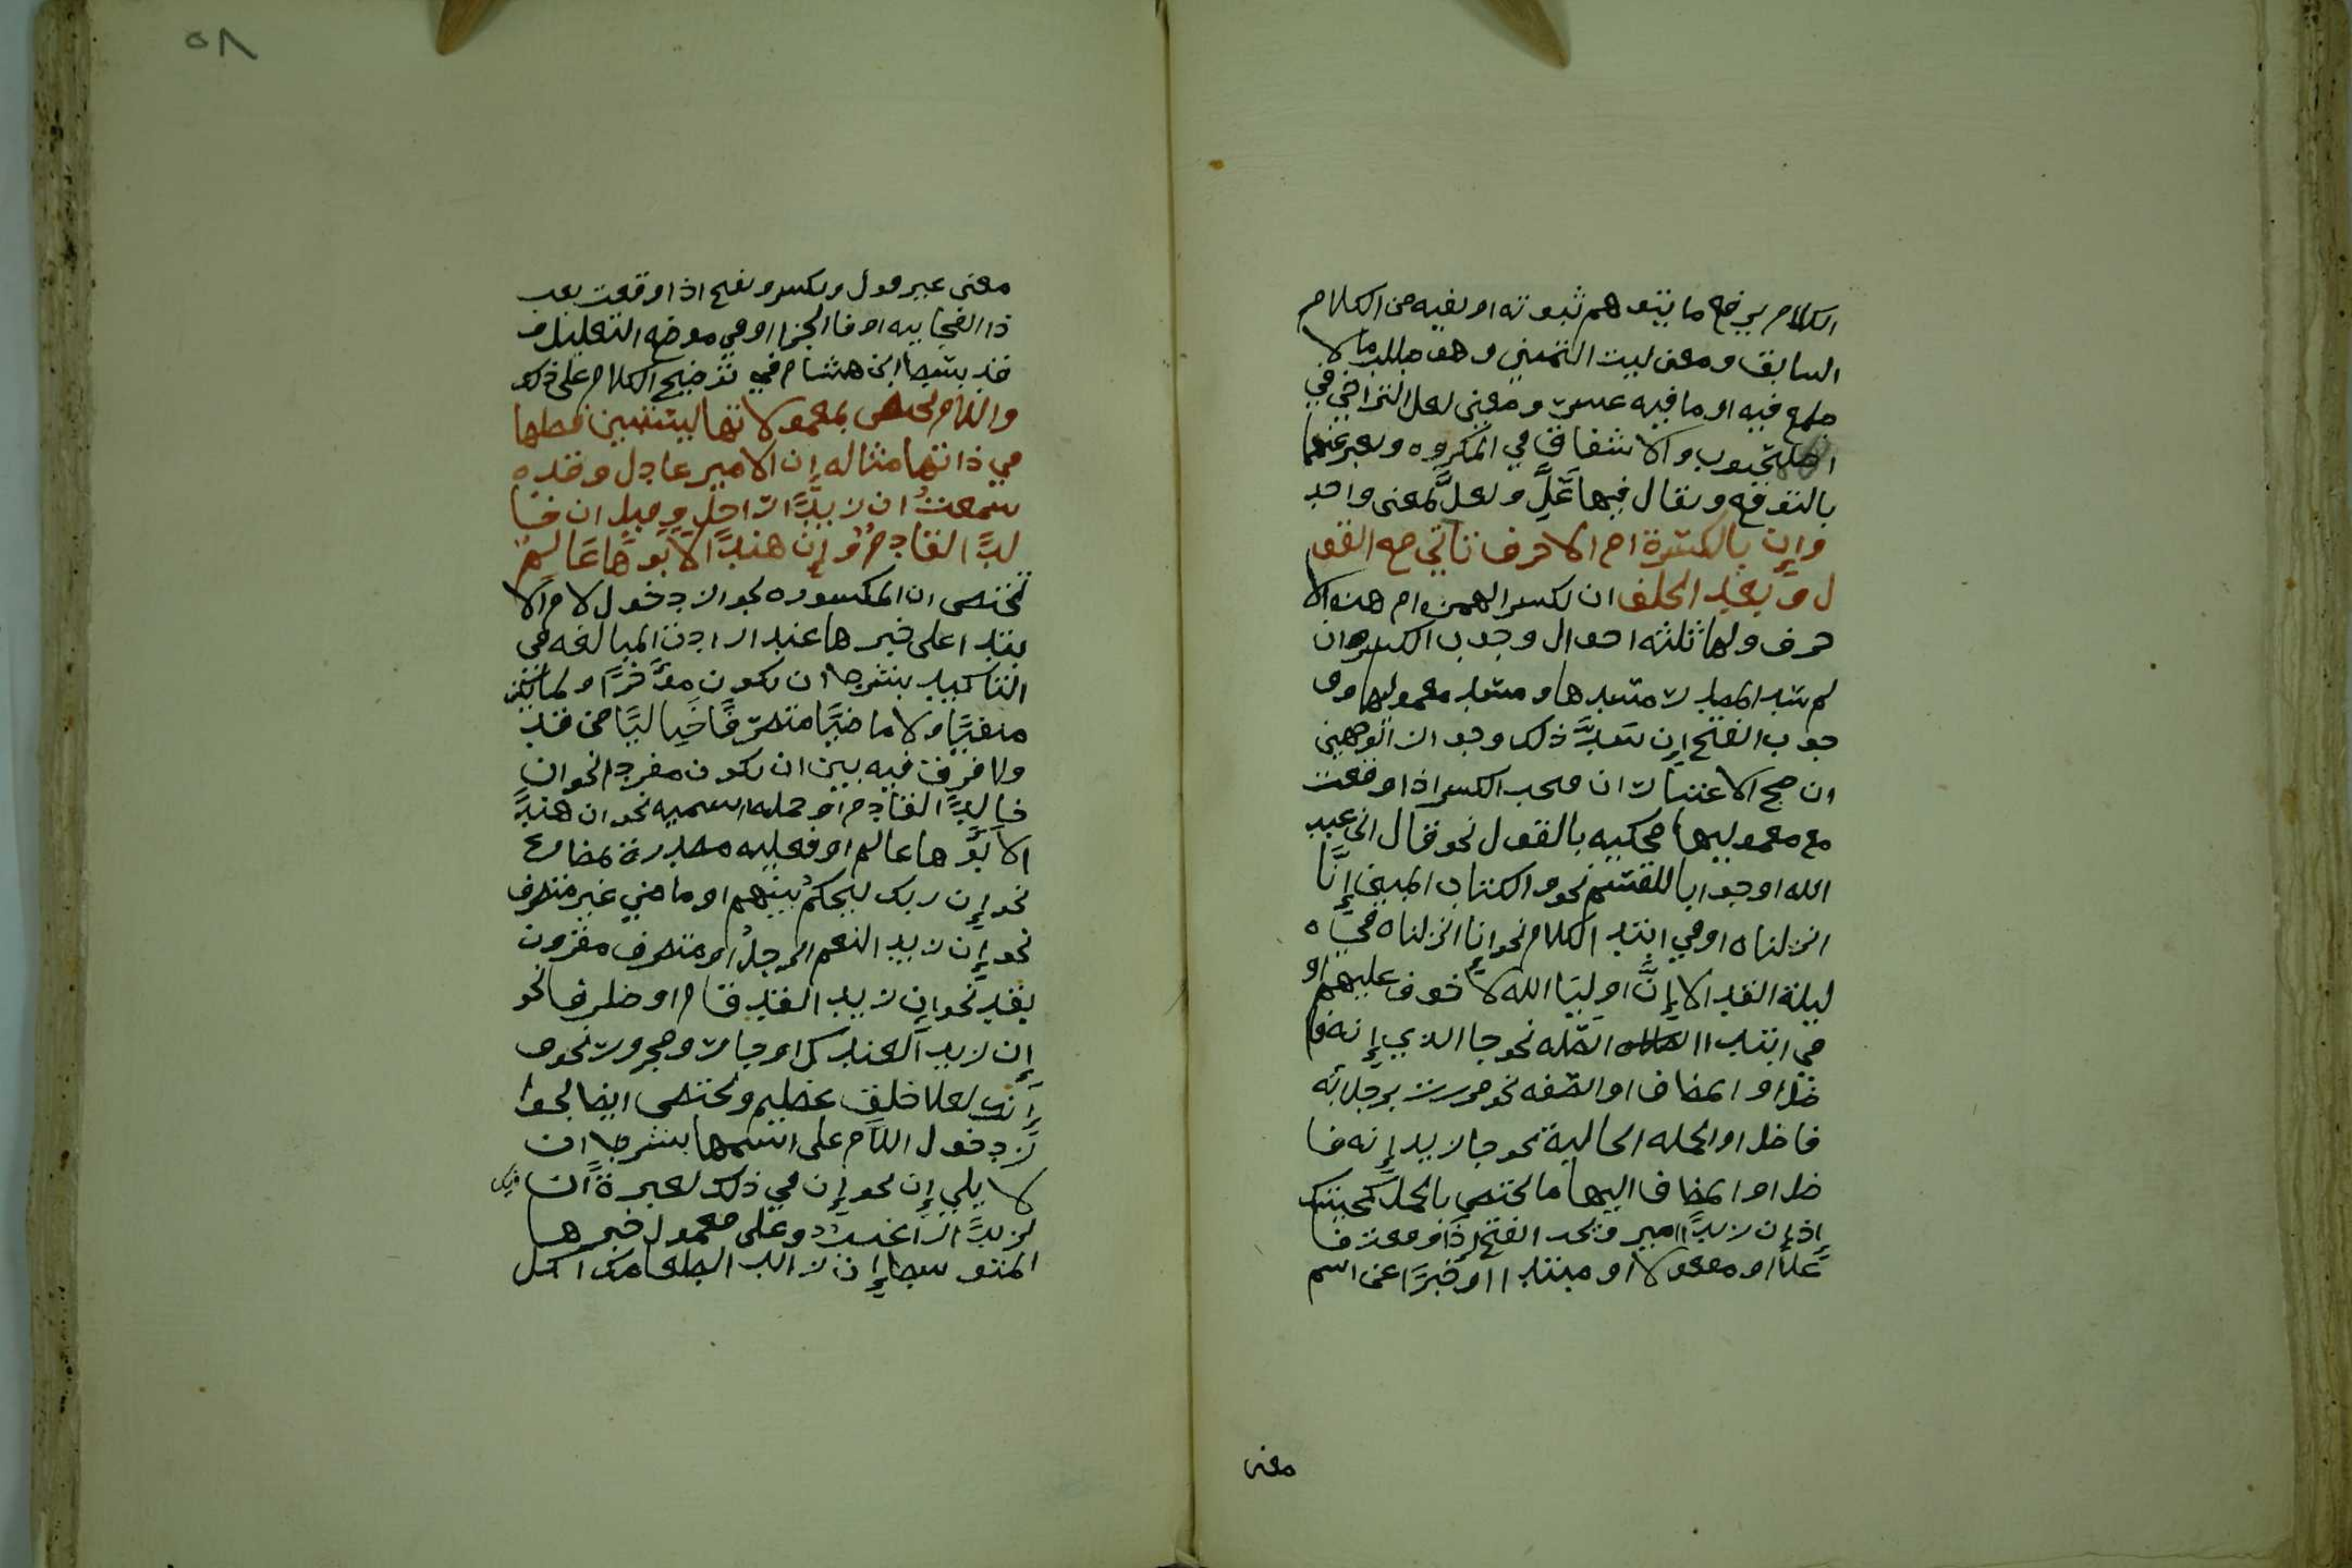 الكلام يرفع ما يتوهم ثبوته او نفيه من الكلام
السابق ومعنى ليت التمني وهو طلب ما لا
طمع فيه او ما فيه عسر ومعنى لعل الترجي في
المحبوب والاشفاق في المكروه ويعبر عنهما
بالتوقع ويقال فيها عَلَّ ولعلَّ بمعنى واحد
وإن بالكسرة ام الاحرف تاتي مع القو
ل وبعد الحلف ان تكسر الهمزه ام هذه الا
حرف ولها ثلثه احوال وجوب الكسر ان
لم يسد المصدر مسدها ومسد معموليها و
جوب الفتح إن سَدَّ ذلك وجواز الوجهين
ان صح الاعتباران فيجب الكسر اذا وقعت
مع معموليها محكيه بالقول نحو قال اني عبد
الله او جوابا للقسم نحو والكتاب المبين إنَّا
انزلناه او في ابتدا الكلام نحو انا انزلناه في
ليلة القدر الا إِنَّ اوليَا الله لا خوف عليهم او
في ابتدا الصله نحو جا الذي إنه فا
ضل او المضاف او الصفه نحو مررت برجل انه
فاضل او الجمله الحالية نحو جا زيد إنه فا
ضل او المضاف اليها ما يختص بالجمل كجيتك
إذ إن زيدًا امير ويجب الفتح إذا وقعت فا
علًا او مفعولا او مبتدا او خبرًا عن اسم
معنى
٥٨
معنى غير قول وتكسر وتفتح اذا وقعت بعد
اذا الفجاييه او فا الجزا او في موضع التعليل و
قد بسط ابن هشام في توضيح الكلام على ذلك
واللام تختص بمعمولاتها ليستبين فضلها
في ذاتها مثاله إن الامير عادل وقد
سمعتُ ان زيدًا راحل وقيل ان خا
لدًا لقادمٌ وإن هندًا لابوها عالم
تختص ان المكسوره بجواز دخول لام الا
بتدا على خبرها عند ارادة المبالغه في
التاكيد بشرط ان يكون مؤخرًا ولا
منفيًا ولا ماضيًا متصرفًا خاليًا من قد
ولا فرق فيه بين ان يكون مفردا نحو ان
خالدًا لقادم او جمله اسميه نحو ان هندًا
لابوها عالم او فعليه مصدرة بمضارع
نحو إن ربك ليحكمُ بينهم او ماضي غير متصرف
نحو إن زيد النعم الرجلُ او متصرف مقرون
بقد نحو إن زيد القد قام او ظرف نحو
إن زيد العندك او جار ومجرور نحو و
إنك لعلا خلق عظيم وتختص ايضا بجوا
ز دخول اللام على اسمها بشرط ان
لا يلي إن نحو إن في ذلك لعبرةً ان فيك
لزيدًا لراغبٌ وعلى معمول خبرها
المتوسط إن زيدا لطعامك آكل